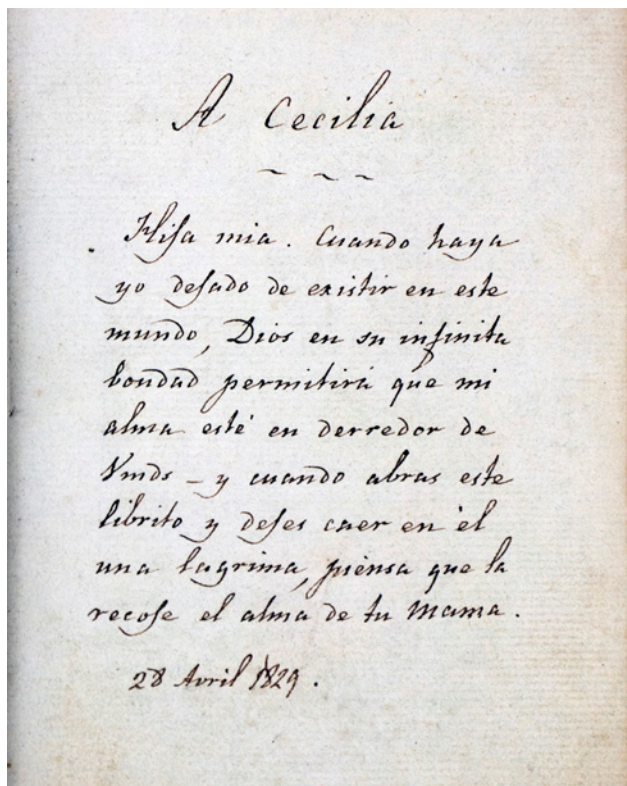 A Cecilia
~ ~ ~
Hija mia. Cuando haya
yo dejado de existir en este
mundo, Dios en su infinita
bondad permitirá que mi
alma esté en derredor de
Vmds – y cuando abras este
librito y dejes caer en él
una lagrima, piensa que la
recoje el alma de tu Mama.
28 Avril 1829.